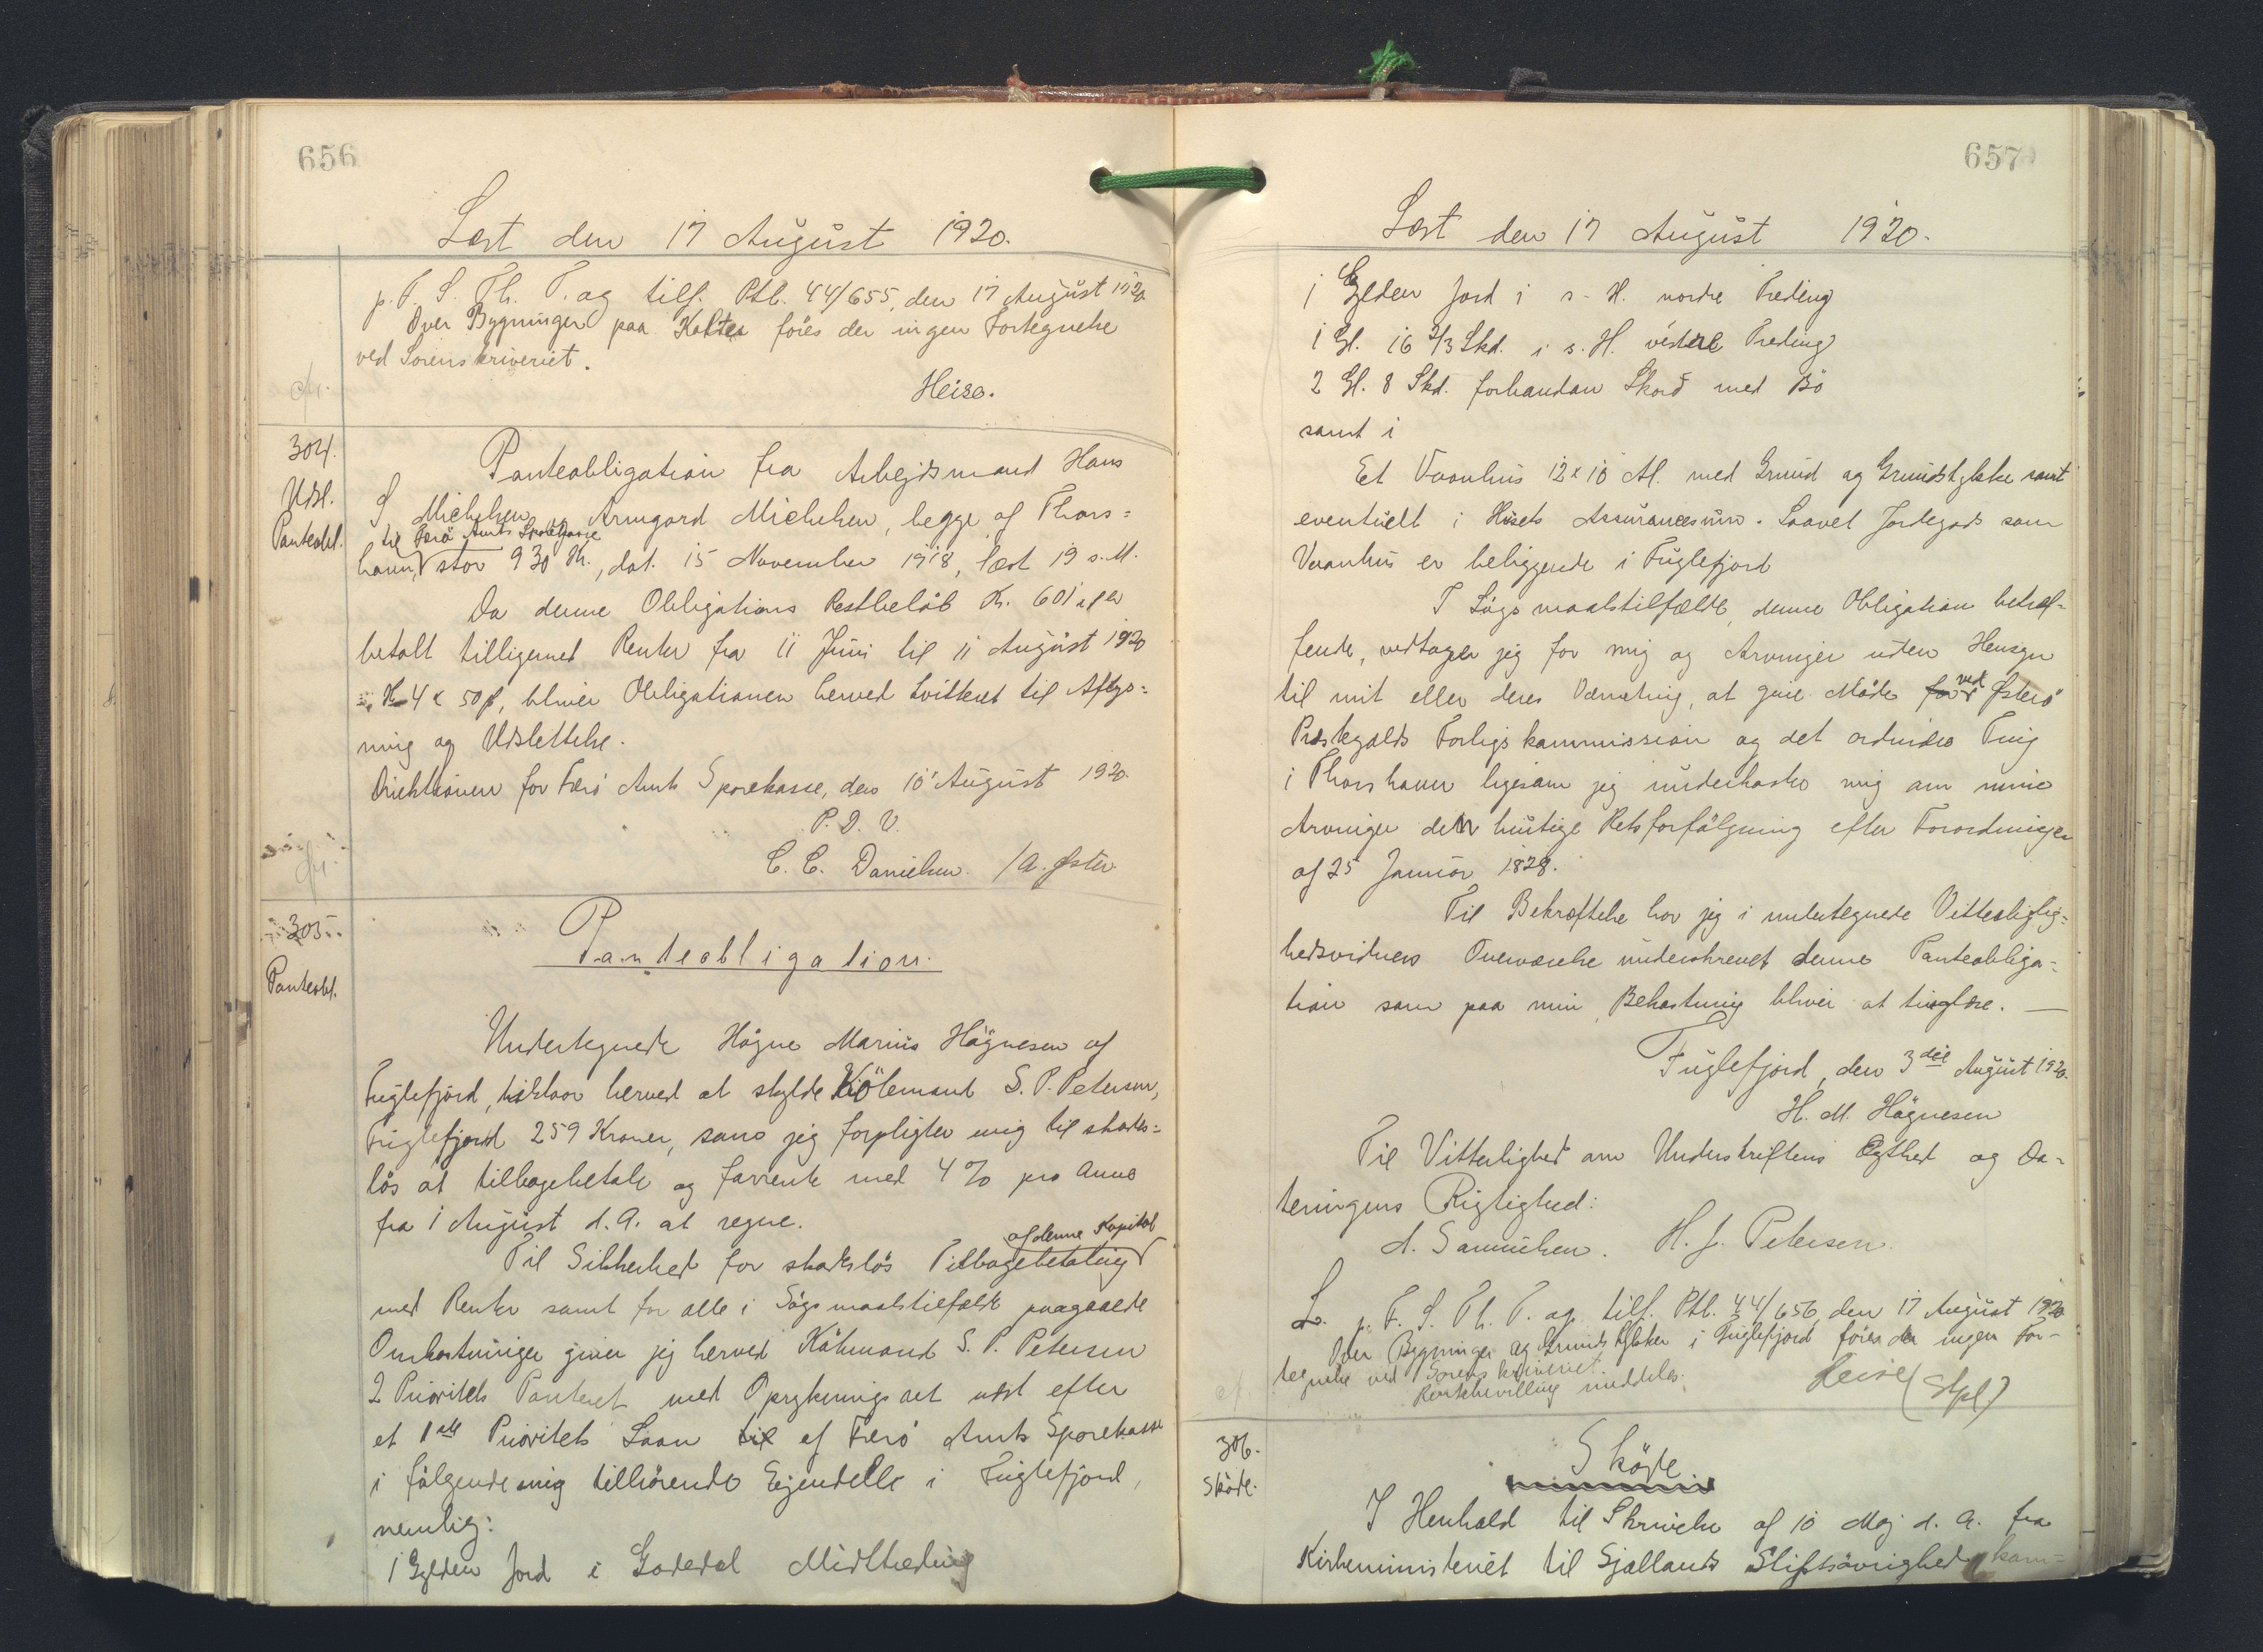 656
Læst den 17 August 1920.
p. F. S. Th. T. og tilf. Ptb. 44/655, den 17 August 1920
Over Bygninger paa Kolter föres der ingen Fortegnelse
ved Sorenskriveriet.
Heise.
304.
Udsl.
Panteobl.
Panteobligation fra Arbejdsmand Hans
S Michelsen og Armgard Michelsen, begge af Thors-
til Færö Amts Sparekasse
havn, stor 930 Kr., dat. 15 November 1918, læst 19 s. M.
Da denne Obligations Restbelöb Kr. 601 er
betalt tilligemed Renter fra 11 Juni til 11 August 1920
Kr 4 " 50 ø, bliver Obligationen herved kvitteret til Aflys-
ning og Udslettelse.
Direktionen for Færö Amts Sparekasse, den 10 August 1920.
P. D. V.
C. C. Danielsen. /A. Öster.
305.
Panteobl.
Panteobligation.
Undertegnede Högne Marius Högnesen af
Fuglefjord, tilstaar herved at skylde Købmand S. P. Petersen,
Fuglefjord 259 Kroner, som jeg forpligter mig til skades-
lös at tilbagebetale og forrente med 4 % pro Anno
fra 1 August d. A. at regne.
af denne Kapital
Til Sikkerhed for skadeslös Tilbagebetaling
med Renter samt for alle i Sögsmaalstilfælde paagaaede
Omkostninger giver jeg herved Köbmand S. P. Petersen
2 Prioritets Panteret med Oprykningsret næst efter
et 1ste Prioritets Laan til af Færö Amts Sparekasse
i fölgende mig tilhörende Ejendele i Fuglefjord,
nemlig:
1 Gylden Jord i Garedal Midtræding
657
Læst den 17 August 1920.
1 Gylden Jord i s. H. nordre Træding
1 Gl. 16 2/3 Skd. i s. H. vestre Træding
2 Gl. 8 Skd. forhandan Skord med Bö
samt i
Et Vaanhus 12 x 10 Al. med Grund og Grundstykke samt
eventuelt i Husets Assurancesum. Saavel Jordegods som
Vaanhus er beliggende i Fuglefjord
I Sögsmaalstilfælde, denne Obligation betræf-
fende, vedtager jeg for mig og Arvinger uden Hensyn
til mit eller deres Værneting, at give Möde for ved Österö
Præstegjælds Forligskommission og det ordinære Ting
i Thorshavn ligesom jeg underkaster mig og mine
Arvinger den hurtige Retsforfölgning efter Forordningen
af 25 Januar 1828.
Til Bekræftelse har jeg i undertegnede Vitterlig-
hedsvidners Overværelse underskrevet denne Panteobliga-
tion som paa min Bekostning bliver at tinglæse. —
Fuglefjord, den 3die August 1920.
H. M. Högnesen
Til Vitterlighed om Underskriftens Ægthed og Da-
teringens Rigtighed:
A. Samuelsen. H. J. Petersen.
L. p. F. S. Th. T. og tilf. Ptb. 44/656, den 17 August 1920
Over Bygninger og Grundstykker i Fuglefjord föres der ingen For-
tegnelse ved Sorenskriveriet.
Rentebevilling meddeles.
Heise (Stpl)
306.
Sköde.
Sköde
I Henhold til Skrivelse af 10 Maj d. A. fra
Kirkeministeriet til Sjællands Stiftsövrighed kom-